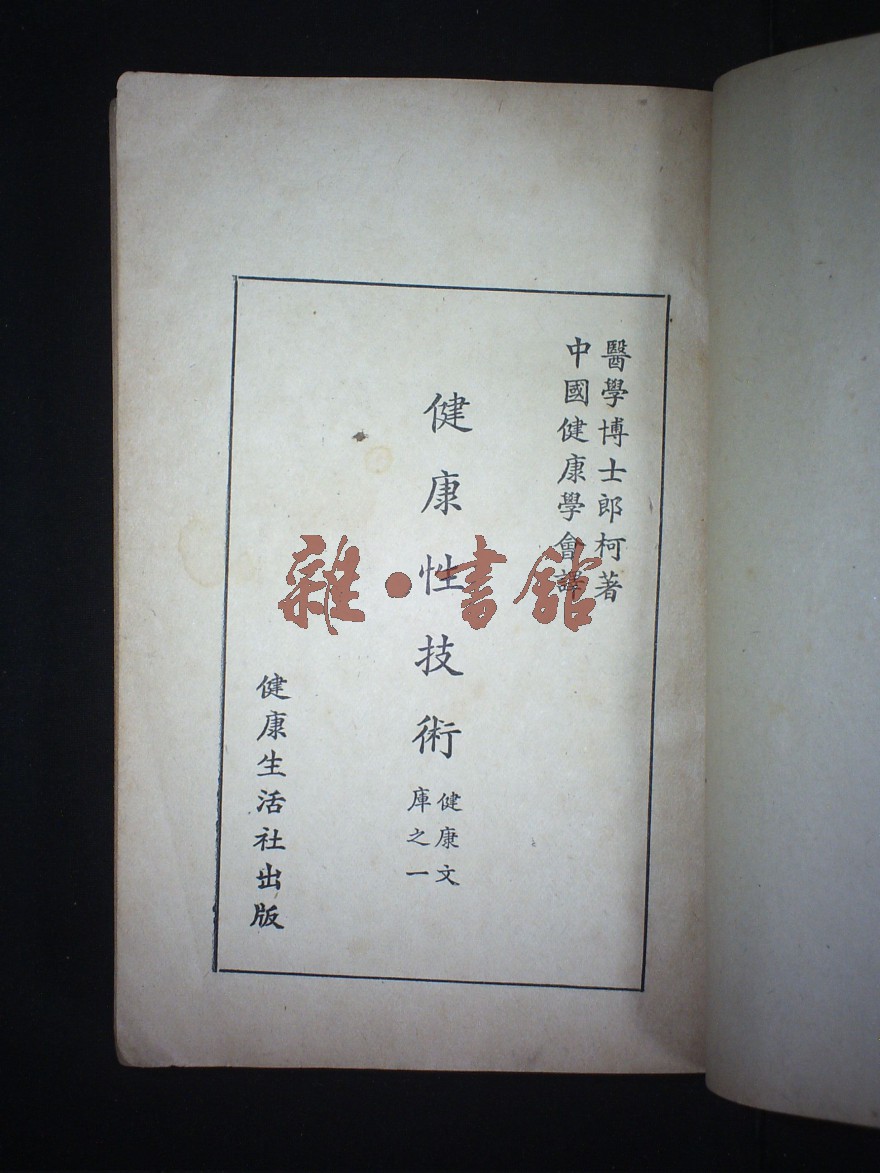 醫學博士郎柯著
中國健康學會譯
健康性技術
健康文
庫之一
健康生活社出版
雜·書館